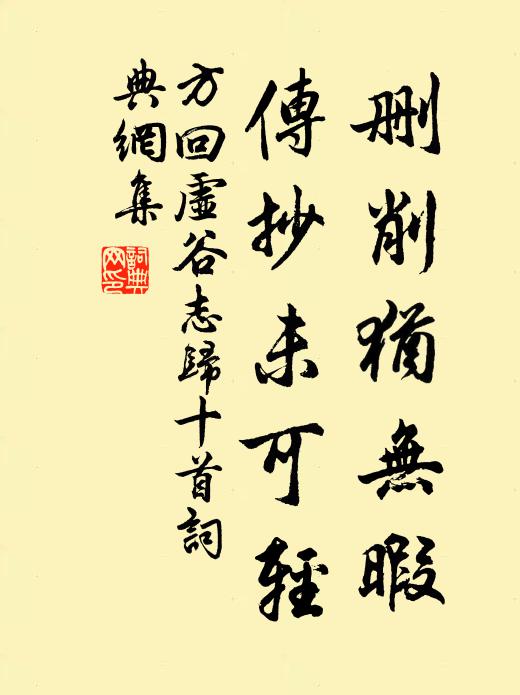 刪削猶無暇
傳抄未可輕
方回虛谷志歸十首詞
典網集
詞典
网印